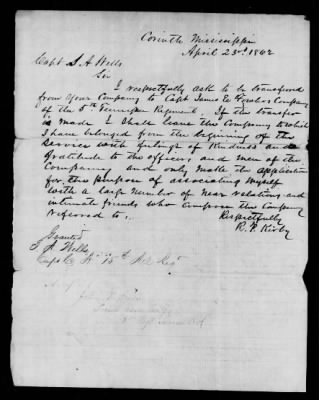 Corinth Mississippi
April 23rd 1862
Capt J A Wells
Sir
I respectfully ask to be transferred
from your Company to Capt James E Company
of the 5th Tennessee Regiment. If the transfer
is made I shall leave this Company to which
I have belonged from the beginning of the
service with feelings of kindness and
gratitude to the officers and men of the
Company and only make the application
for the purpose of associating myself
with a large number of near relations and
intimate friends who compose this Company
referred to.
Respectfully
R. P. Kirby
Granted
J A Wells
Capt Co 15th Regt